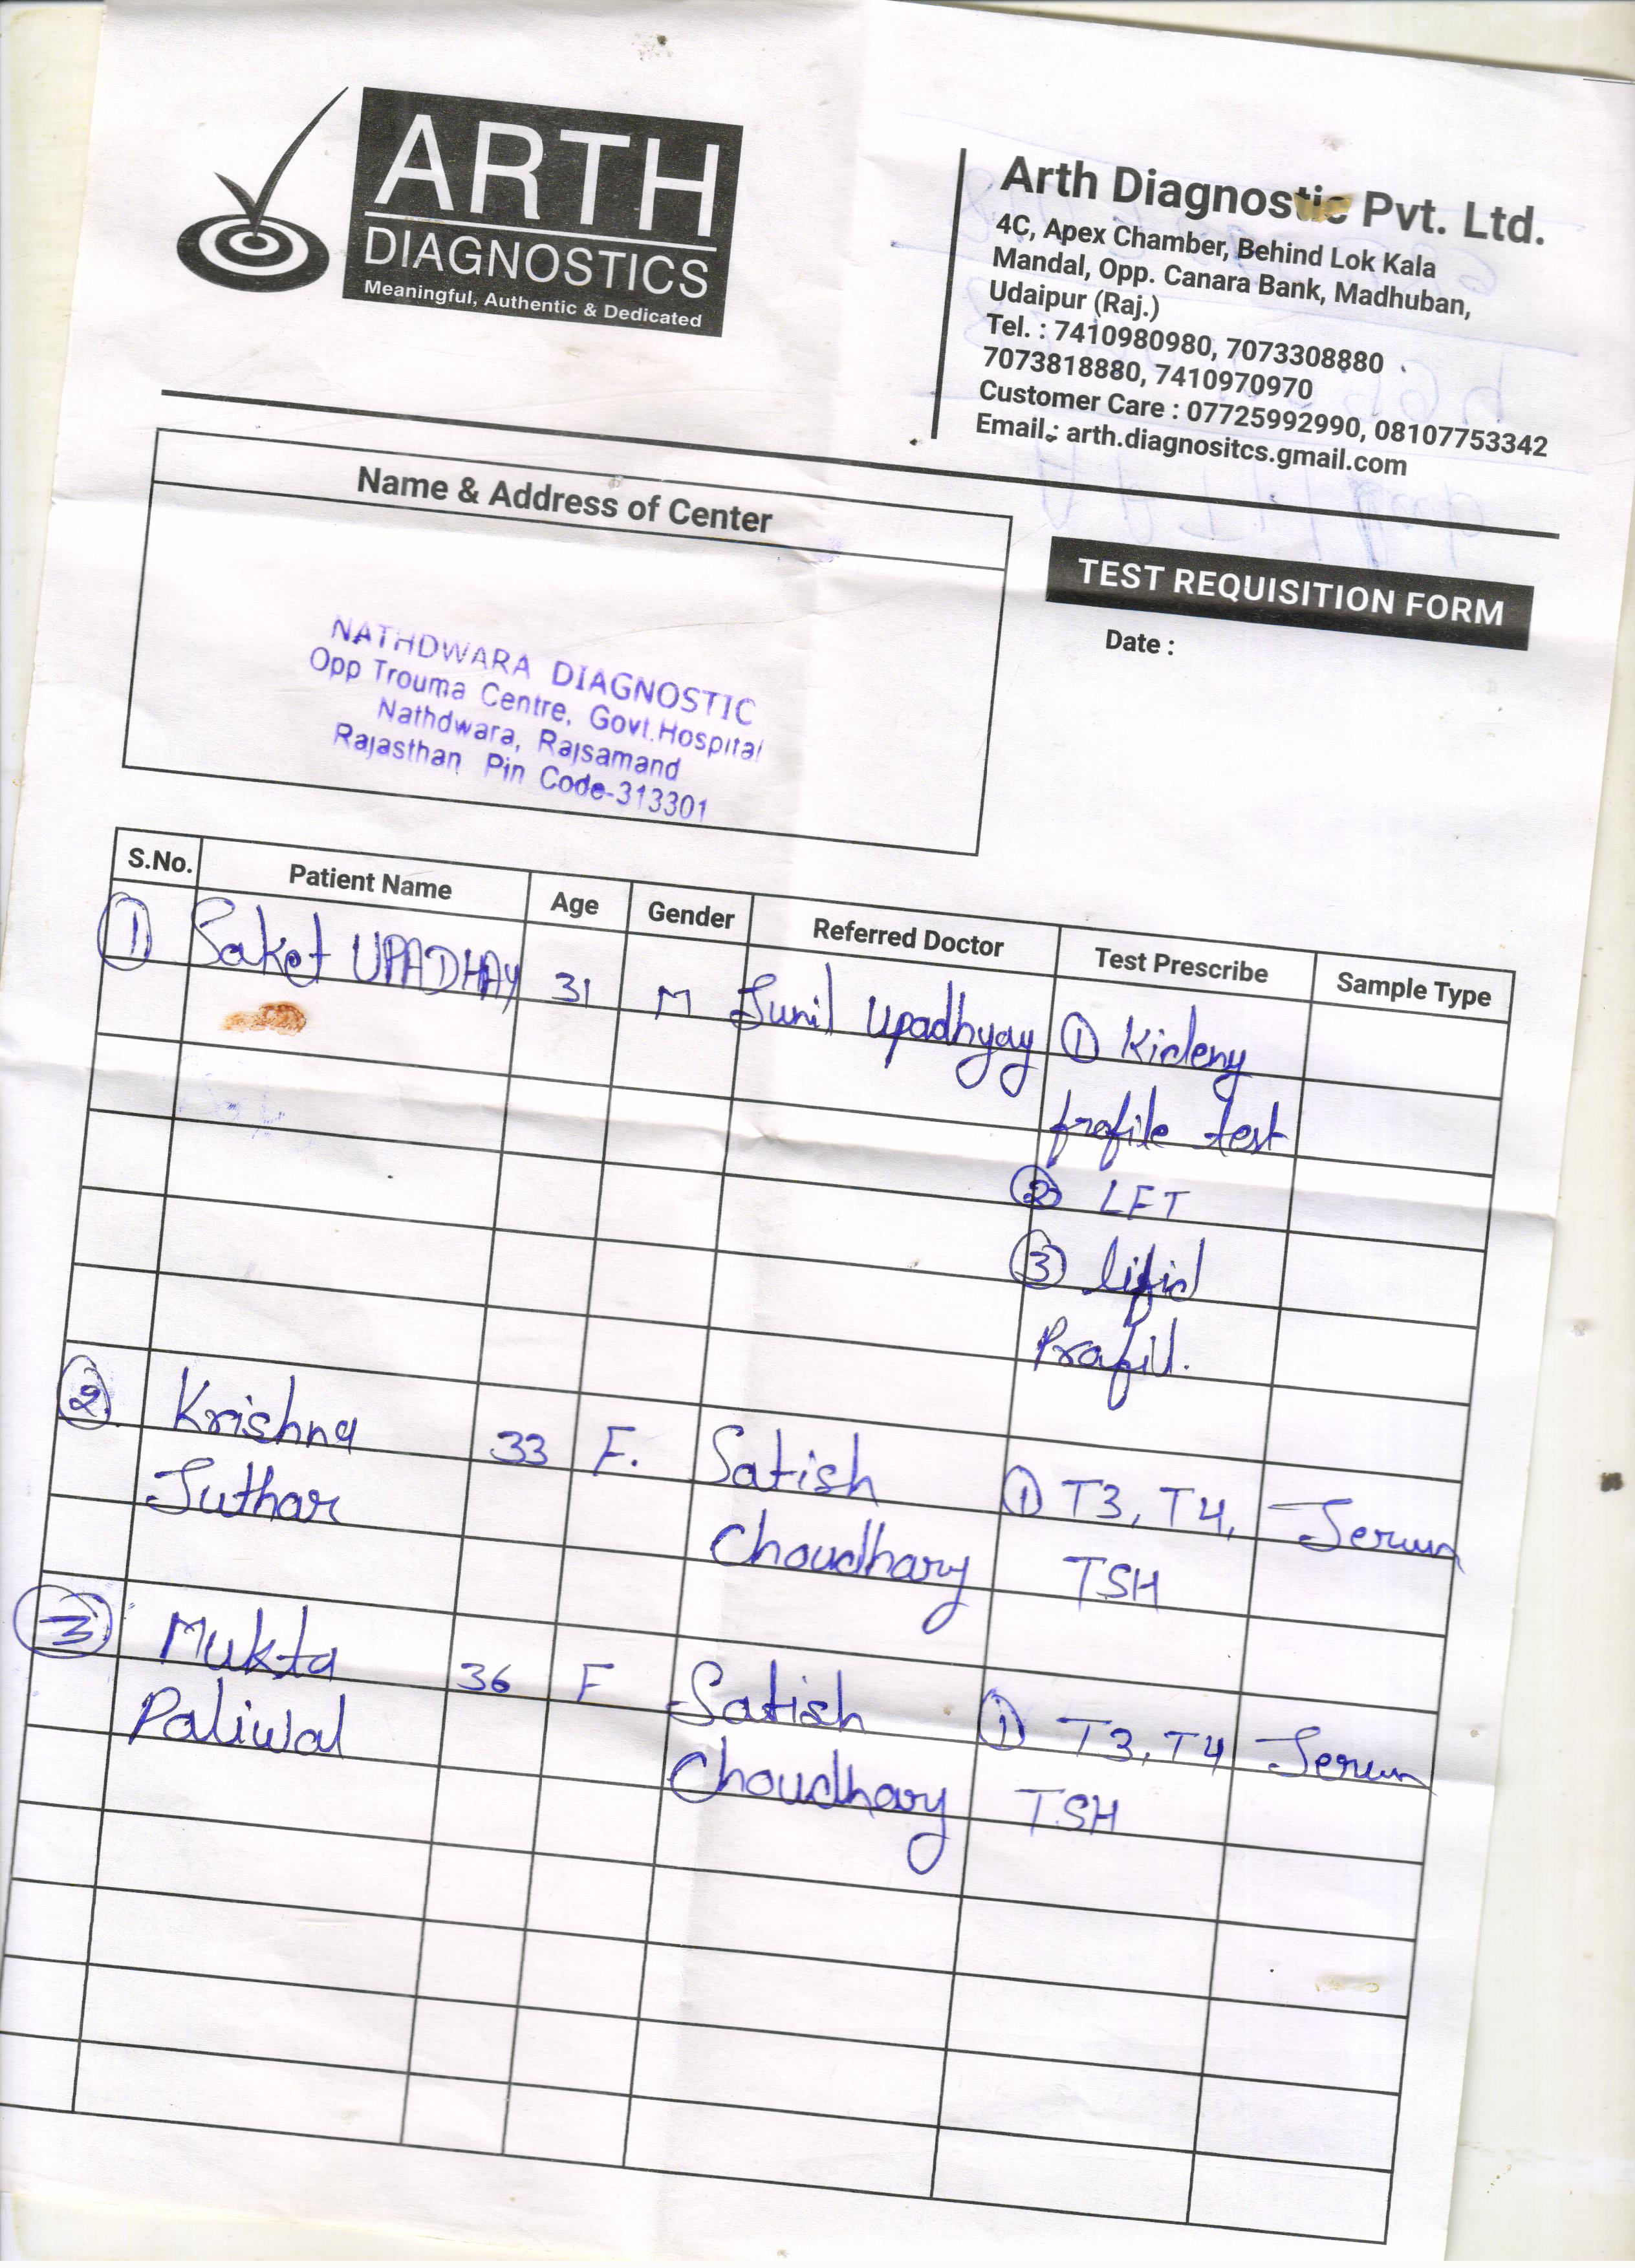 ARTH
DIAGNOSTICS
Meaningful, Authentic & Dedicated
Arth Diagnostic Pvt. Ltd.
4C, Apex Chamber, Behind Lok Kala
Mandal, Opp. Canara Bank, Madhuban,
Udaipur (Raj.)
Tel. : 7410980980, 7073308880
7073818880, 7410970970
Customer Care : 07725992990, 08107753342
Email.: arth.diagnositcs.gmail.com
Name & Address of Center
NATHDWARA DIAGNOSTIC
Opp Trouma Centre, Govt.Hospital
Nathdwara, Rajsamand
Rajasthan Pin Code-313301
TEST REQUISITION FORM
Date :
S.No. Patient Name Age Gender Referred Doctor Test Prescribe Sample Type
① Saket UPADHAY 31 M Sunil Upadhyay ① Kideny
profile test
② LFT
③ lipid
Profil.
② Krishna 33 F. Satish ① T3, T4, Serum
Suthar Choudhary TSH
③ Mukta 36 F Satish ① T3, T4 Serum
Paliwal Choudhary TSH